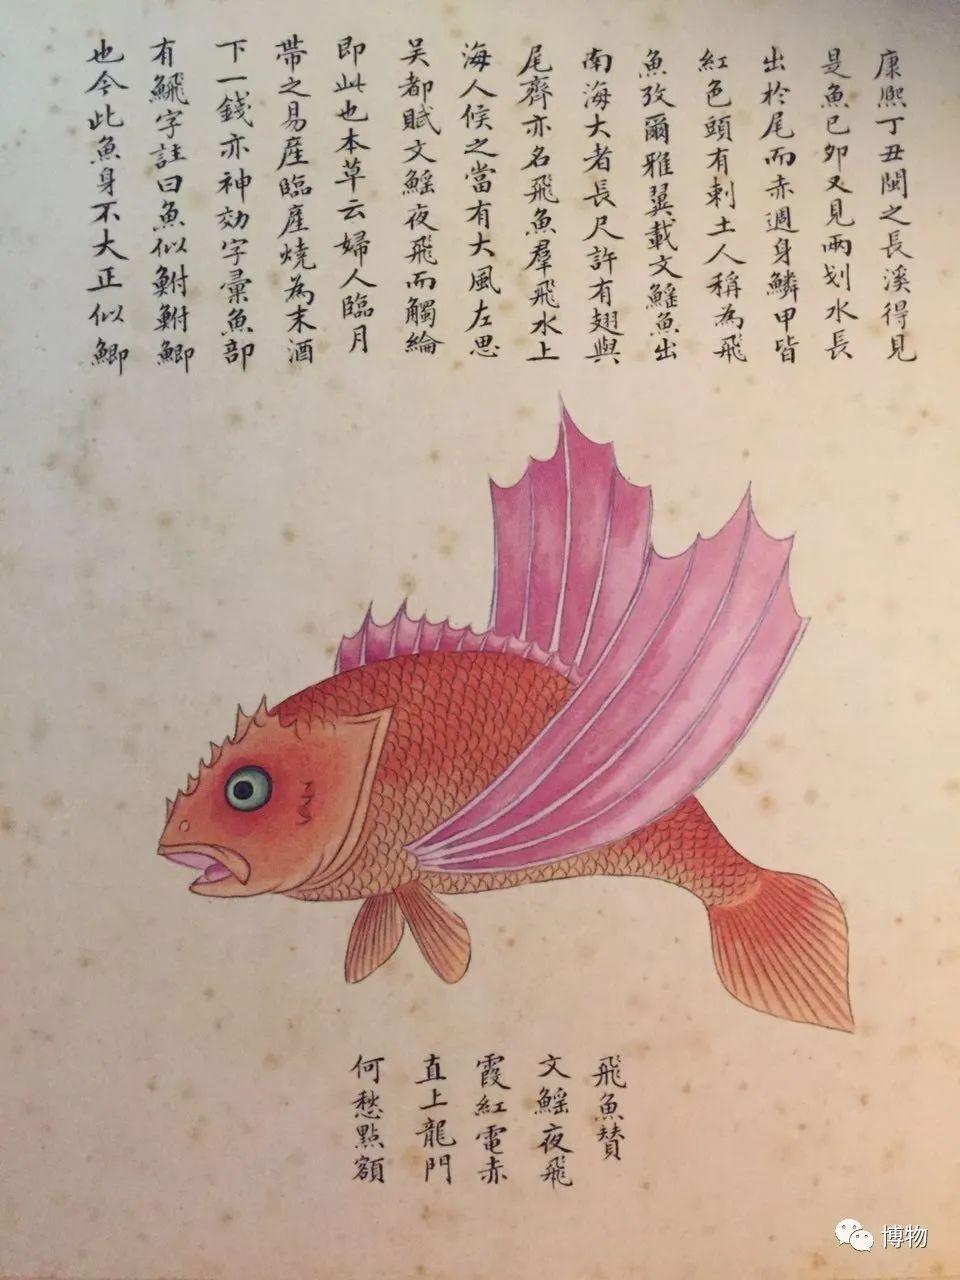 康熙丁丑閩之長溪得見
是魚已夘又見兩划水長
出於尾而赤週身鱗甲皆
紅色頭有刺土人稱為飛
魚攷爾雅翼載文鰩魚出
南海大者長尺許有翅與
尾齊亦名飛魚羣飛水上
海人候之當有大風左思
吴都賦文鰩夜飛而觸綸
即此也本草云婦人臨月
帶之易産臨産燒為末酒
下一錢亦神効字彙魚部
有䱀字註曰魚似鮒鮒鯽
也今此魚身不大正似鯽
飛魚賛
文鰩夜飛
霞紅電赤
直上龍門
何愁點額
博物